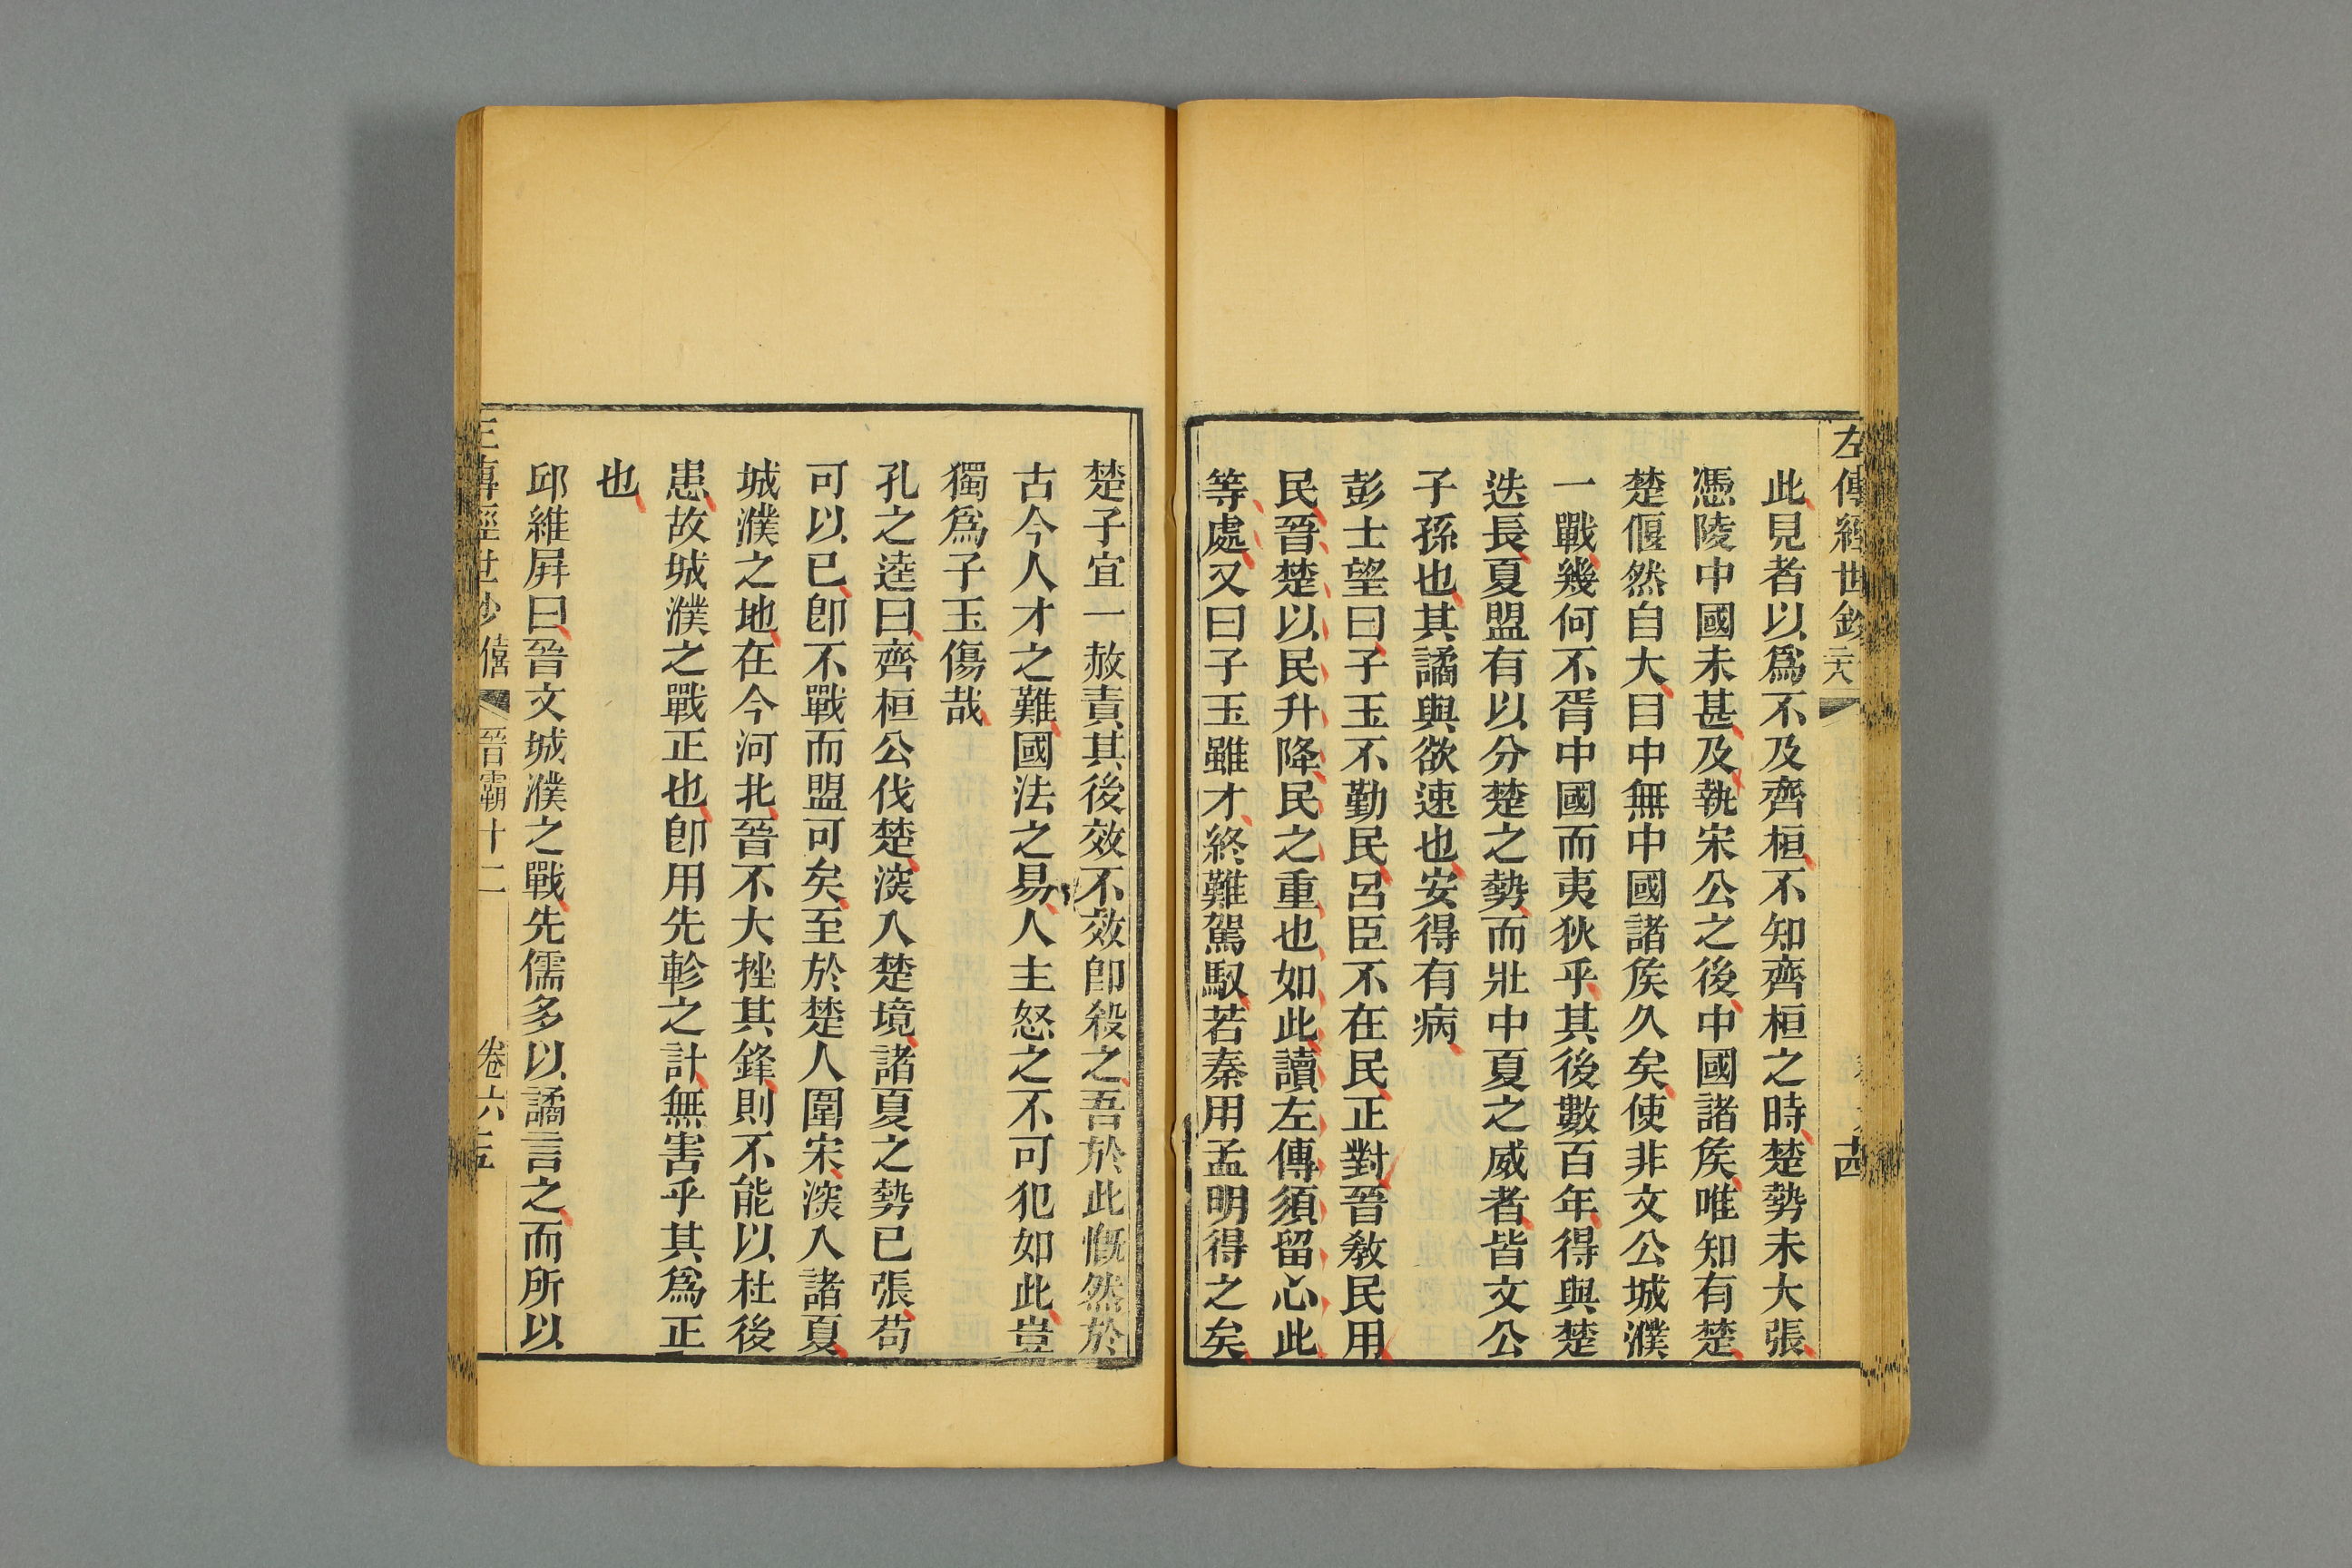 左傳經世鈔
此見者以爲不及齊桓不知齊桓之時楚勢未大張
憑陵中國未甚及執宋公之後中國諸矦唯知有楚
楚偃然自大目中無中國諸矦久矣使非文公城濮
一戰幾何不胥中國而夷狄乎其後數百年得與楚
迭長夏盟有以分楚之勢而壯中夏之威者皆文公
子孫也其譎與欲速也安得有病
彭士望曰子玉不勤民呂臣不在民正對晉敎民用
民晉楚以民升降民之重也如此讀左傳須留心此
等處又曰子玉雖才終難駕馭若秦用孟明得之矣
楚子宜一赦責其後效不效卽殺之吾於此慨然於
古今人才之難國法之易人主怒之不可犯如此豈
獨爲子玉傷哉
孔之逵曰齊桓公伐楚湥入楚境諸夏之勢已張苟
可以已卽不戰而盟可矣至於楚人圍宋湥入諸夏
城濮之地在今河北晉不大挫其鋒則不能以杜後
患故城濮之戰正也卽用先軫之計無害乎其爲正
也
邱維屏曰晉文城濮之戰先儒多以譎言之而所以
晉霸十二
卷六